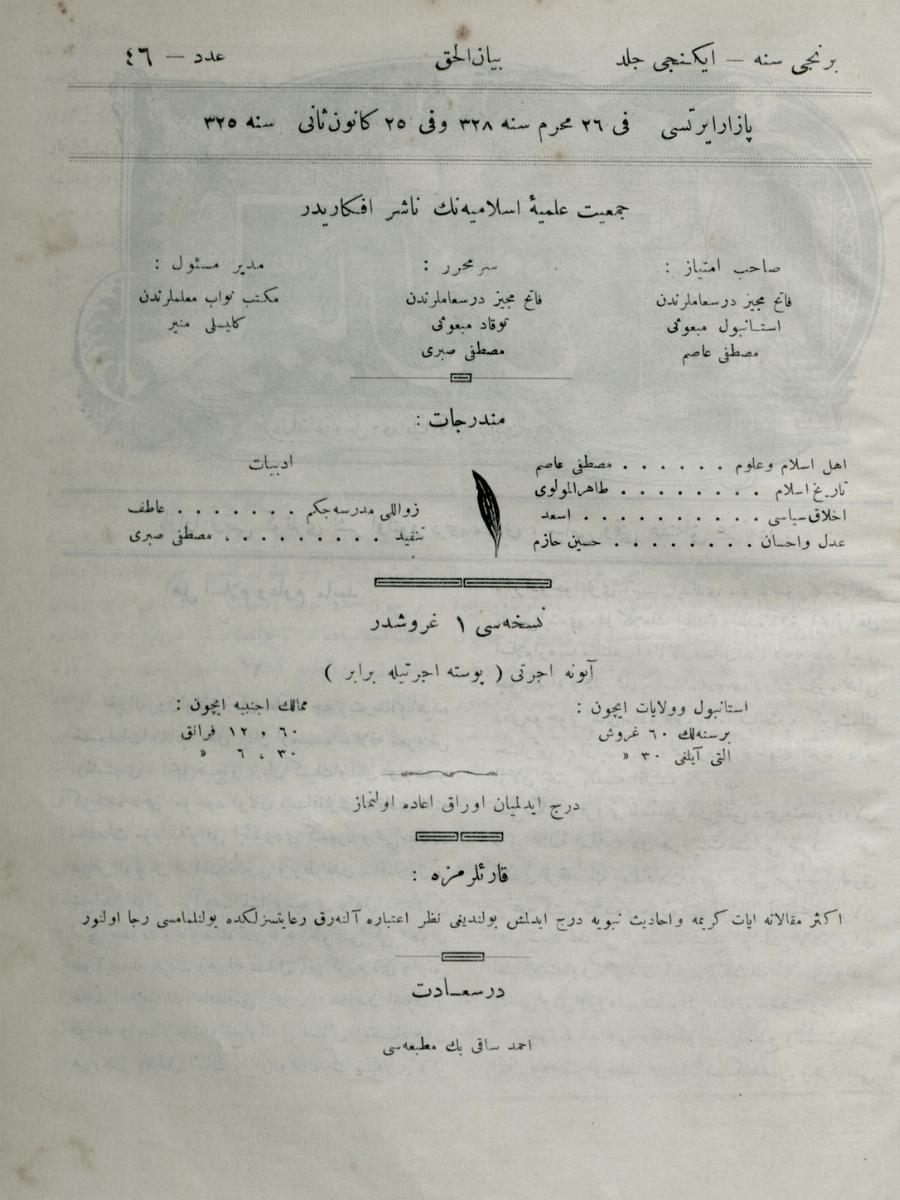 برنجی سنه — ایکنجی جلد بیان‌الحق عدد — ٤٦
پازارایرتسی فی ٢٦ محرم سنه ٣٢٨ وفی ٢٥ کانون‌ثانی سنه ٣٢٥
جمعیت علمیهٔ اسلامیه‌نك ناشر افکاریدر
صاحب امتیاز :
فاتح مجیز درسعاملرندن
استانبول مبعوثی
مصطفی عاصم
سر محرر :
فاتح مجیز درسعاملرندن
توقاد مبعوثی
مصطفی صبری
مدیر مسئول :
مکتب نواب معلملرندن
کلیسلی منیر
مندرجات :
اهل اسلام وعلوم . . . . . . مصطفی عاصم
تاریخ اسلام . . . . . . . . طاهرالمولوی
اخلاق سیاسی . . . . . . . . . . اسعد
عدل واحسان . . . . . . . . حسین حازم
ادبیات
زواللی مدرسه‌جکم . . . . . . . عاطف
تنقید . . . . . . . . . مصطفی صبری
نسخه‌سی ١ غروشدر
آبونه اجرتی ( پوسته اجرتیله برابر )
استانبول وولایات ایچون :
برسنه‌لك ٦٠ غروش
التی آیلغی ٣٠ »
ممالك اجنبیه ایچون :
٦٠ ، ١٢ فرانق
٣٠ ، ٦ »
درج ایدلمیان اوراق اعاده اولنماز
قارئلرمزه :
اکثر مقالاته ایات کریمه واحادیث نبویه درج ایدلمش بولندیغی نظر اعتباره آلنه‌رق رعایتسزلکده بولنلمامسی رجا اولنور
درسعادت
احمد ساقی بك مطبعه‌سی